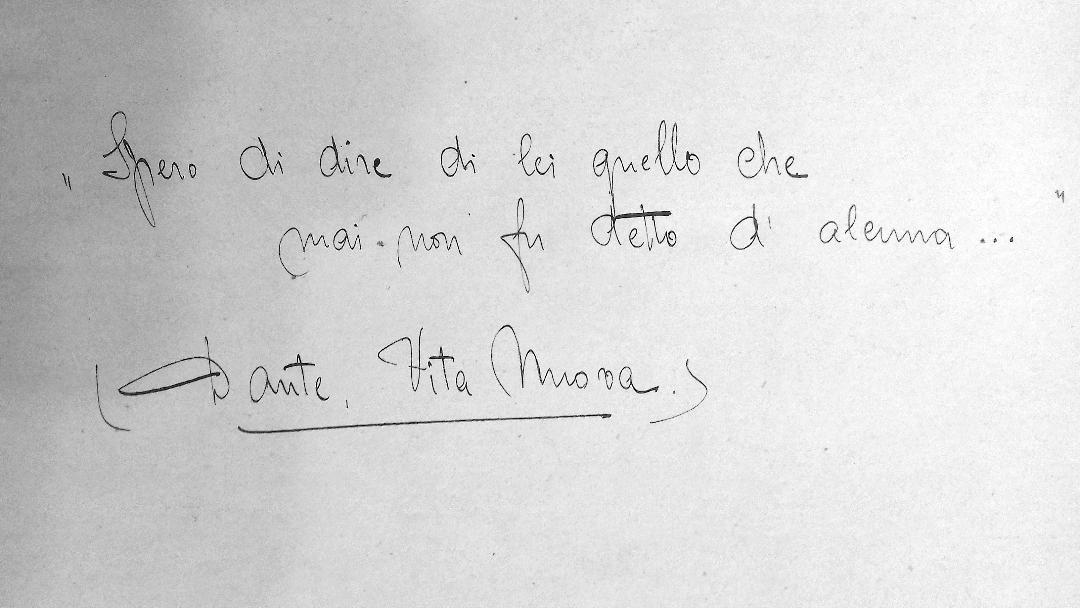 „ Spero di dire di lei quello che
mai non fu detto d' alcuna ... "
(Dante, Vita Nuova.)